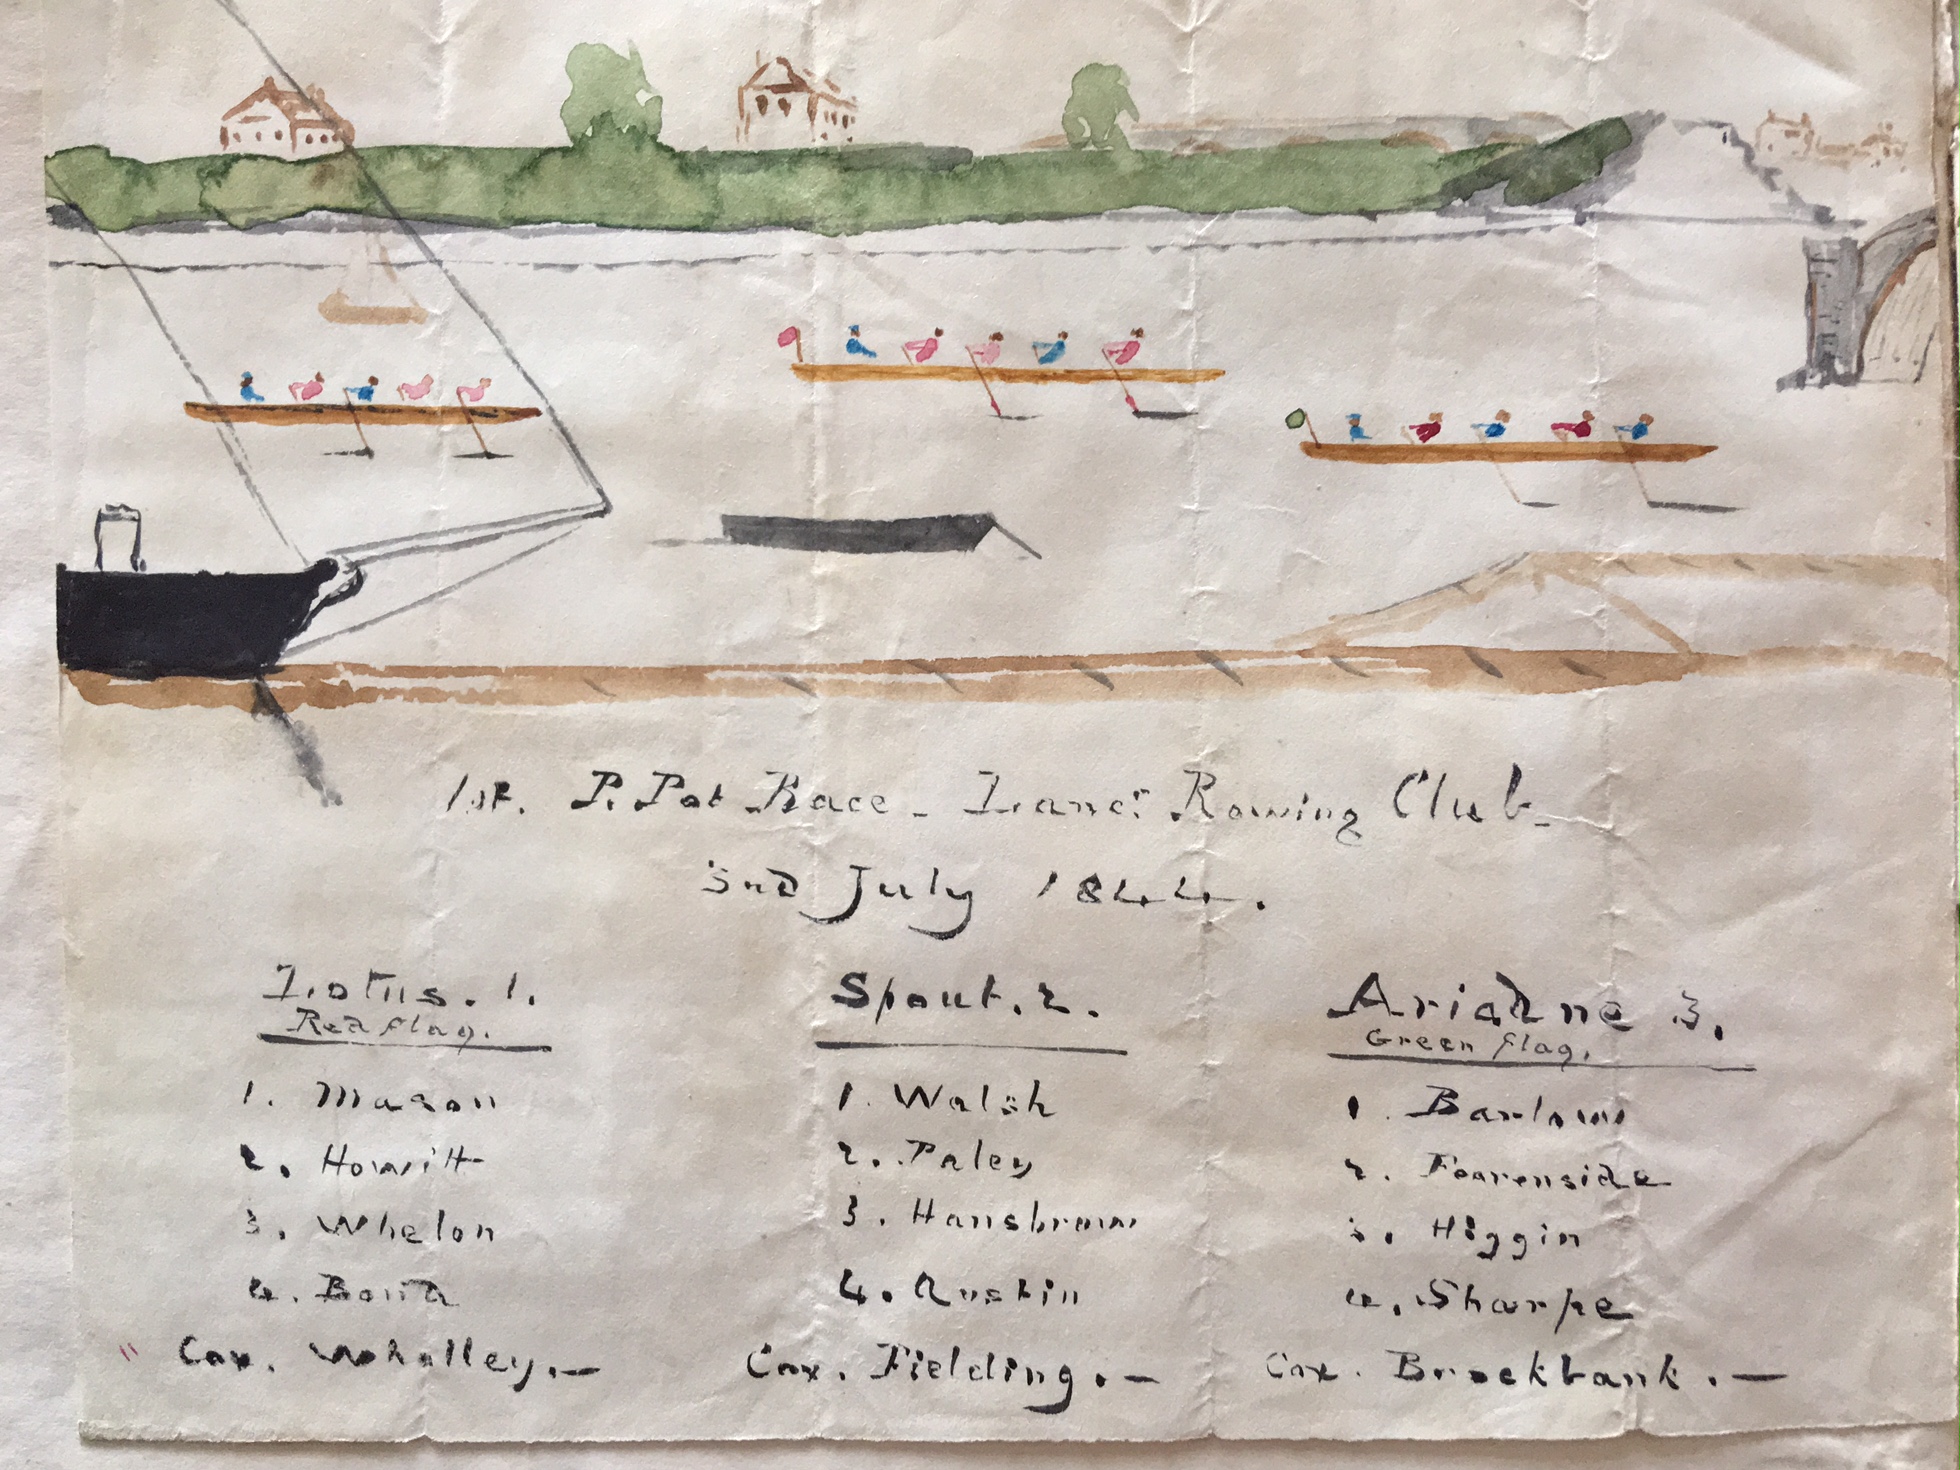 1st. P. Pot Race - Lancr. Rowing Club -
2nd July 1844.
Lotus. 1.
Red flag.
1. Mason
2. Howitt
3. Whelon
4. Bond
" Cox. Whalley. -
Spout. 2.
1. Walsh
2. Paley
3. Hansbrow
4. Austin
Cox. Fielding. -
Ariadne 3.
Green flag.
1. Barlow
2. Fearenside
3. Higgin
4. Sharpe
Cox. Brockbank. -